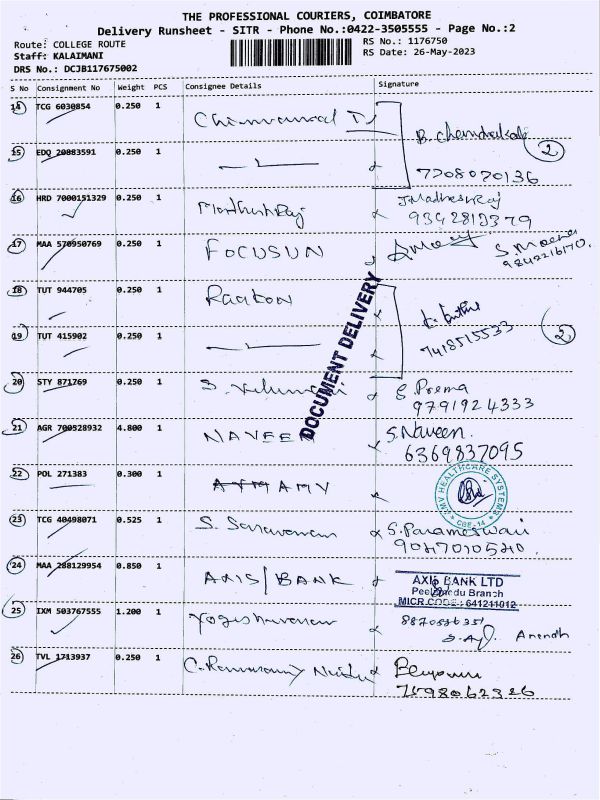 THE PROFESSIONAL COURIERS, COIMBATORE
Delivery Runsheet - SITR - Phone No.:0422-3505555 - Page No.:2
Route: COLLEGE ROUTE
Staff: KALAIMANI
DRS No.: DCJB117675002
RS No.: 1176750
RS Date: 26-May-2023
S No Consignment No Weight PCS Consignee Details Signature
14 TCG 6030854 0.250 1
B. Chandrakala
7708070136
2
15 EDQ 20883591 0.250 1
16 HRD 7000151329 0.250 1
9342812379
17 MAA 570950769 0.250 1 FOCUSUN
S. Meena
9842216170.
18 TUT 944705 0.250 1
7418515533
2
19 TUT 415902 0.250 1
20 STY 871769 0.250 1 S. Prema
9791924333
21 AGR 700528932 4.800 1 NAVEEN S. Naveen.
6369837095
22 POL 271383 0.300 1 AMV
AMV HEALTHCARE SYSTEMS
CBE-14
23 TCG 40498071 0.525 1 S. Saravanan S. Parameswari
24 MAA 288129954 0.850 1 AXIS/BANK
AXIS BANK LTD
Peelamedu Branch
MICR CODE: 641211012
25 IXM 503767555 1.200 1 Yogeshwaran
Anandh
26 TVL 1713937 0.250 1 C. Ramasamy Naidu
DOCUMENT DELIVERY